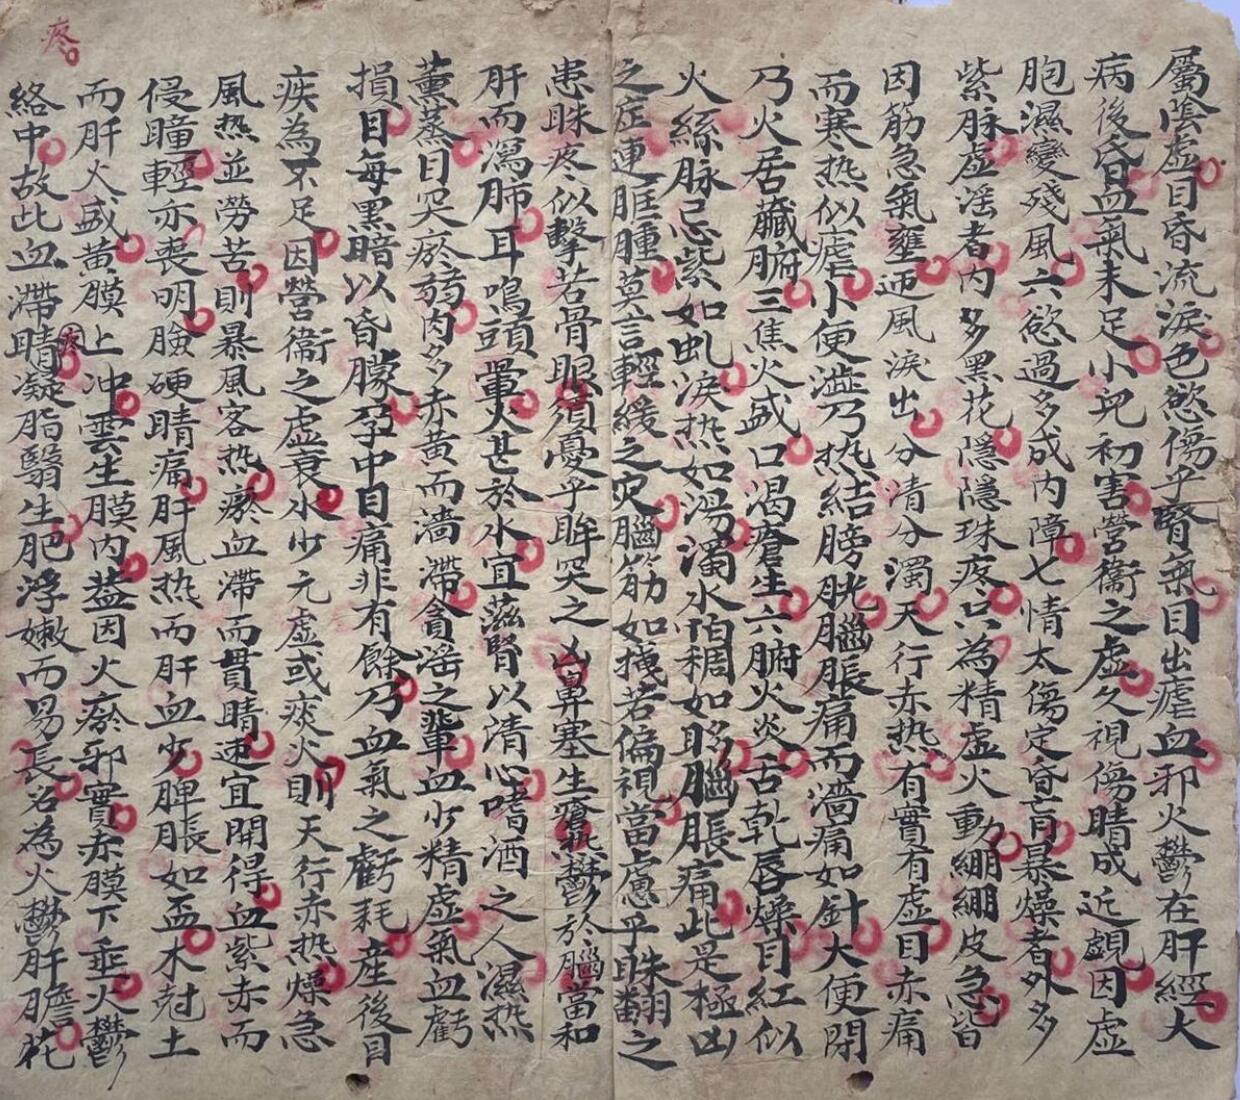 屬陰虛目昏流淚色慾傷乎腎氣目出虐血邪火鬱在肝經大
病後昏血氣未足小兒初害營衞之虛久視傷睛成近覷因虛
胞濕變殘風六慾過多成內障七情太傷定昏盲暴燥者外多
紫脉虛淫者內多黑花隱隱珠疼只為精虛火動綳綳皮急皆
因筋急氣壅迎風淚出分清分濁天行赤热有實有虛目赤痛
而寒热似虐小便澁乃热結膀胱腦脹痛而濇痛如針大便閉
乃火居藏腑三焦火盛口渴瘡生六腑火炎舌乾唇燥目紅似
火絲脉忌紫如虬淚热如湯濁水怕稠如眵腦脹痛此是極凶
之症連眶腫莫言輕緩之灾腦筋如拽若偏視當慮乎珠翻之
患眛疼似擊若骨眼須憂乎眸突之凶鼻塞生瘡热鬱於腦當和
肝而瀉肺耳鳴頭暈火甚於水宜滋腎以清心嗜酒之人濕热
薰蒸目突瘀弱肉多赤黃而濇滯貪淫之輩血少精虛氣血虧
損目每黑暗以昏矇孕中目痛非有餘乃血氣之虧耗產後目
疾為不足因營衞之虛衰水少元虛或痰火則天行赤热燥急
風热並勞苦則暴風客热瘀血滯而貫睛速宜開得血紫赤而
侵瞳輕亦喪明臉硬睛痛肝風热而肝血少脾脹如盃木尅土
而肝火盛黃膜上冲雲生膜內葢因火瘀邪實赤膜下垂火鬱
絡中故此血滯睛凝脂翳生肥浮嫩而易長名為火鬱肝膽花
疼
疼